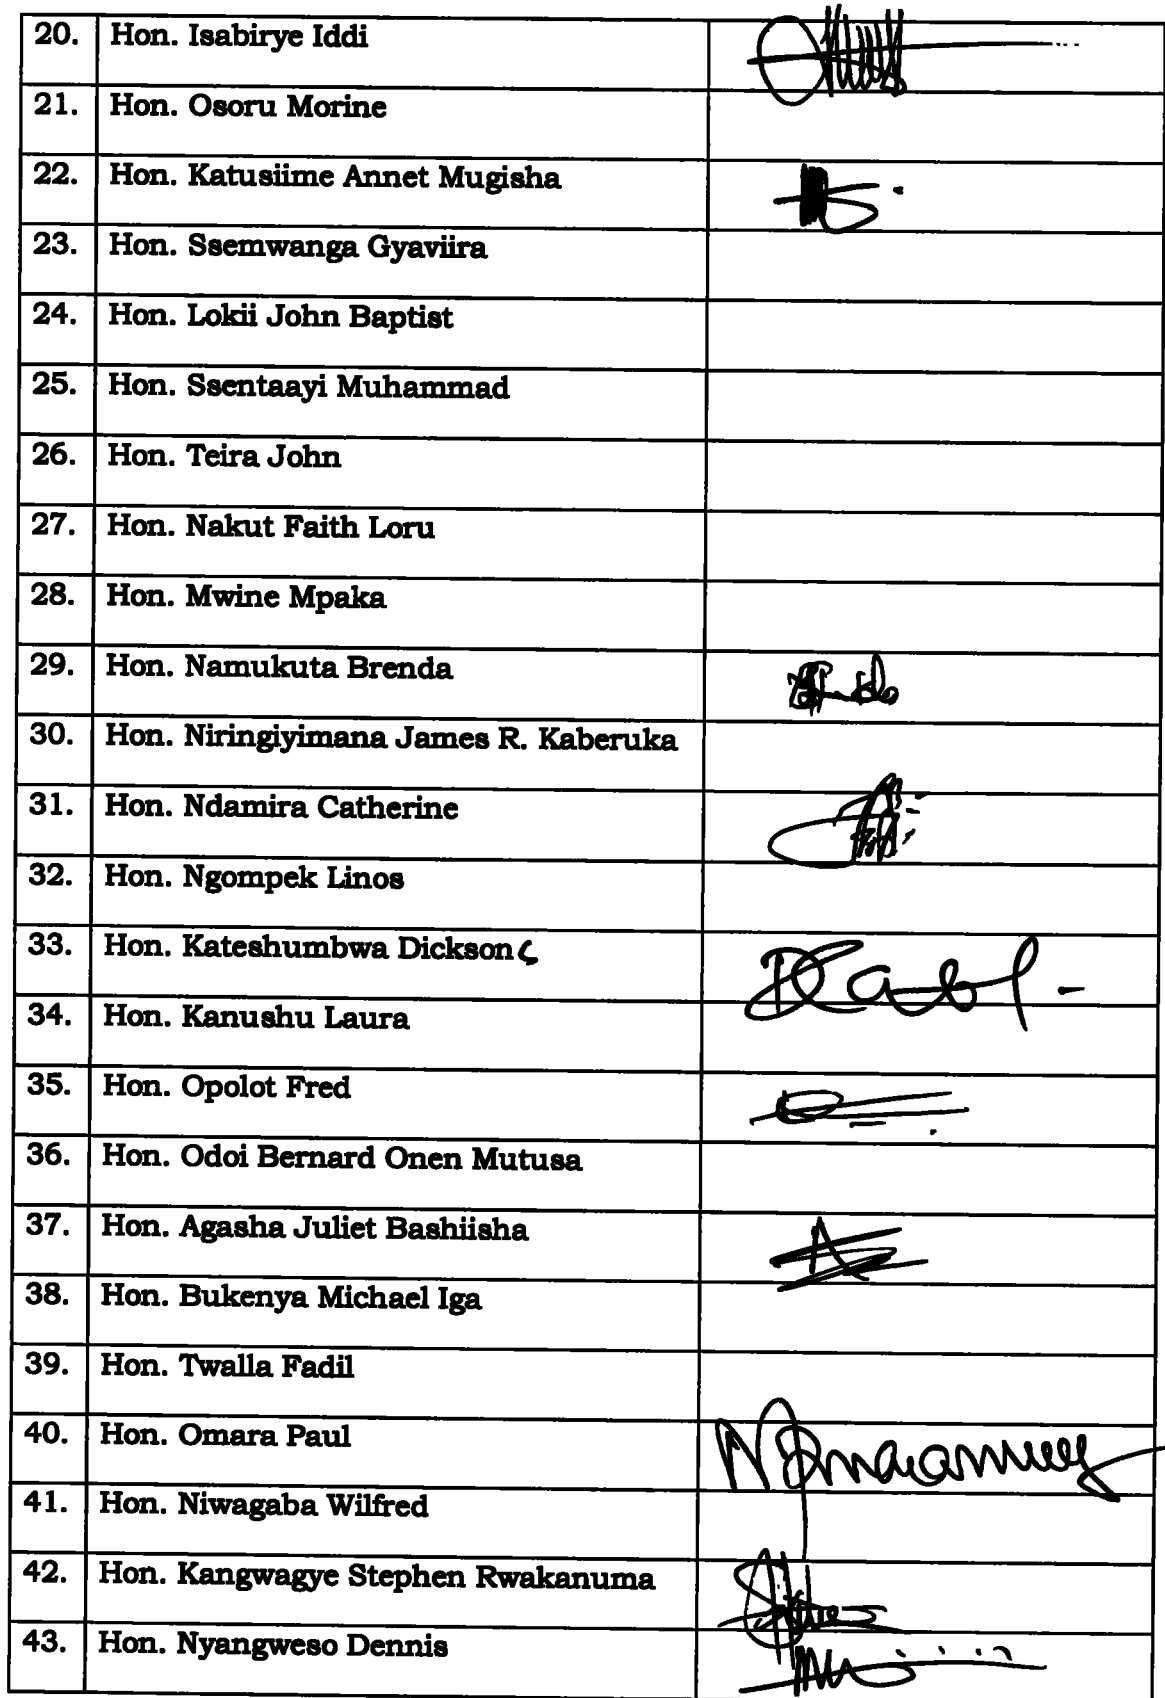 20. Hon. Isabirye Iddi
21. Hon. Osoru Morine
22. Hon. Katusiime Annet Mugisha
23. Hon. Ssemwanga Gyaviira
24. Hon. Lokii John Baptist
25. Hon. Ssentaayi Muhammad
26. Hon. Teira John
27. Hon. Nakut Faith Loru
28. Hon. Mwine Mpaka
29. Hon. Namukuta Brenda
30. Hon. Niringiyimana James R. Kaberuka
31. Hon. Ndamira Catherine
32. Hon. Ngompek Linos
33. Hon. Kateshumbwa Dickson
34. Hon. Kanushu Laura
35. Hon. Opolot Fred
36. Hon. Odoi Bernard Onen Mutusa
37. Hon. Agasha Juliet Bashiisha
38. Hon. Bukenya Michael Iga
39. Hon. Twalla Fadil
40. Hon. Omara Paul
41. Hon. Niwagaba Wilfred
42. Hon. Kangwagye Stephen Rwakanuma
43. Hon. Nyangweso Dennis